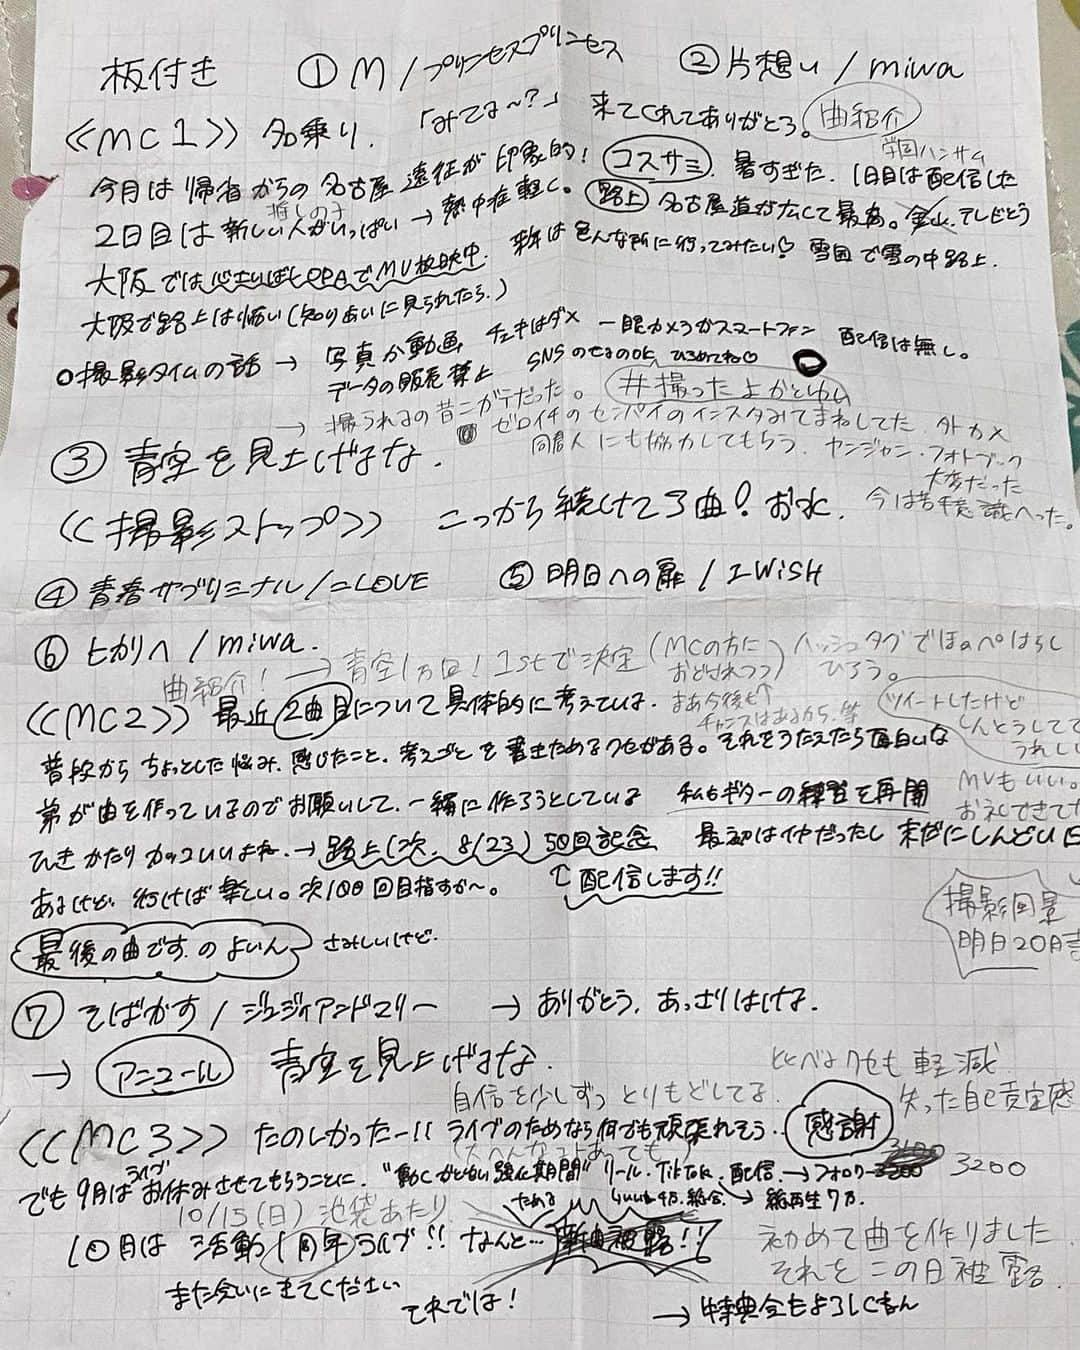 板付き ①M/プリンセスプリンセス ②片想い/miwa
≪MC1≫ 名乗り. 「みてる〜?」 来てくれてありがとう。 曲紹介
学園ハンサム
今月は帰省からの名古屋遠征が印象的! コスサミ 暑すぎた. 1日目は配信した
推しの子
2日目は新しい人がいっぱい → 熱中症軽く。 路上 名古屋道が広くて最高。金山. テレビとう
大阪では心斎ばしOPAでMV放映中. 来年は色んな所に行ってみたい♡ 雪国で雪の中路上.
大阪で路上は怖い(知りあいに見られたら.)
○撮影タイムの話 → 写真か動画 チェキはダメ 一眼カメラかスマートフォン 配信は無し。
データの販売禁止 SNSのせるのOK ひろめてね♡
#撮ったよかとゆい
→ 撮られるの昔ニガテだった。 ゼロイチのセンパイのインスタみてまねしてた 外カメ
同居人にも協力してもらう. ヤンジャン・フォトブック
大変だった
③ 青空を見上げるな. 今は苦手意識へった。
≪撮影ストップ≫ こっから続けて3曲! お水.
④ 青春サブリミナル/=LOVE ⑤ 明日への扉/I WiSH
⑥ ヒカリへ/miwa.
曲紹介! → 青空1万回! 1stで決定(MCの方におどされつつ) ハッシュタグでほめぺはらし
ひろう。
≪MC2≫ 最近2曲目について具体的に考えている. まあ今後も
チャンスはあるから. 等
ツイートしたけど
しんとうしてて
うれしい
普段からちょっとした悩み. 感じたこと. 考えごとを書きためるクセがある。それをうたえたら面白いな
弟が曲を作っているのでお願いして. 一緒に作ろうとしている 私もギターの練習を再開
MVもいい。
お礼できて
ひきがたりカッコいいよね. → 路上(次. 8/23) 50回記念 最初はイヤだったし 未だにしんどい日
あるけど. 行けば楽しい。次100回目指すか〜。 配信します!!
撮影回景
明日20時
最後の曲です. のよいん さみしいけど.
⑦ そばかす/ジュディアンドマリー → ありがとう. あっさりはける.
→ アンコール 青空を見上げるな.
比べるクセも軽減
自信を少しずつとりもどしてる. 失った自己肯定感
≪MC3≫ たのしかったー!! ライブのためなら何でも頑張れそう.. 感謝
(大へんなコトあっても)
でも9月はライブお休みさせてもらうことに. "動くかとゆい強化期間" リール・TikTok・配信. → フォロワー 3200
ためる いいね4万. 総合. 総再生7万.
10/15(日) 池袋あたり
10月は 活動1周年ライブ!! なんと… 新曲披露!! 初めて曲を作りました
それをこの日披露.
また会いにきてください
それでは! → 特典会もよろしくまん